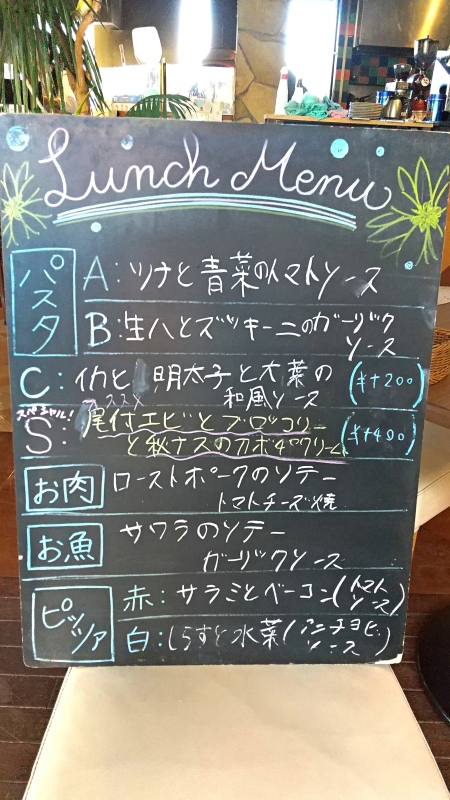 Lunch Menu
パスタ
A:ツナと青菜のトマトソース
B:生ハムとズッキーニのガーリック
ソース
C:イカと 明太子と大葉の
和風ソース
(¥+200)
スペシャル!
オススメ
S:尾付エビとブロッコリー
と秋ナスのカボチャクリーム
(¥+400)
お肉
ローストポークのソテー
トマトチーズ焼
お魚
サワラのソテー
ガーリックソース
ピッツァ
赤:サラミとベーコン(トマト
ソース)
白:しらすと水菜(アンチョビ
ソース)